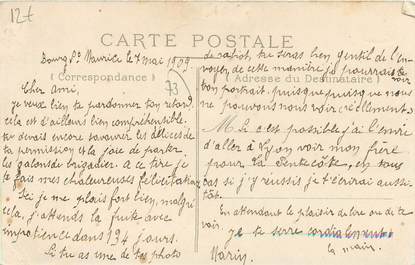 12f
CARTE POSTALE
Bourg St Maurice le 7 mai 1909
(Correspondance)
73
(Adresse du Destinataire)
Cher ami,
je veux bien te pardonner ton retard,
cela est d'ailleurs bien compréhensible
tu devais encore savourer les délices de
ta permission et la joie de porter
les galons de brigadier. A ce titre je
te fais mes chaleureuses félicitations
Ici je me plais fort bien, malgré
cela, j'attends la fuite avec
impatience dans 194 jours.
Si tu as une de tes photo
de rabiot, tu seras bien gentil de l'en-
voyer de cette manière je pourrais voir
ton portrait puisque puisque nous
ne pouvons nous voir réellement.
Si c'est possible j'ai envie
d'aller à Lyon voir mon frère
pour la Pentecôte, en tous
cas si j'y réussis je t'écrirai aussi-
tôt.
En attendant le plaisir de lire ou de te
voir, je te serre cordialement
la main.
Marin